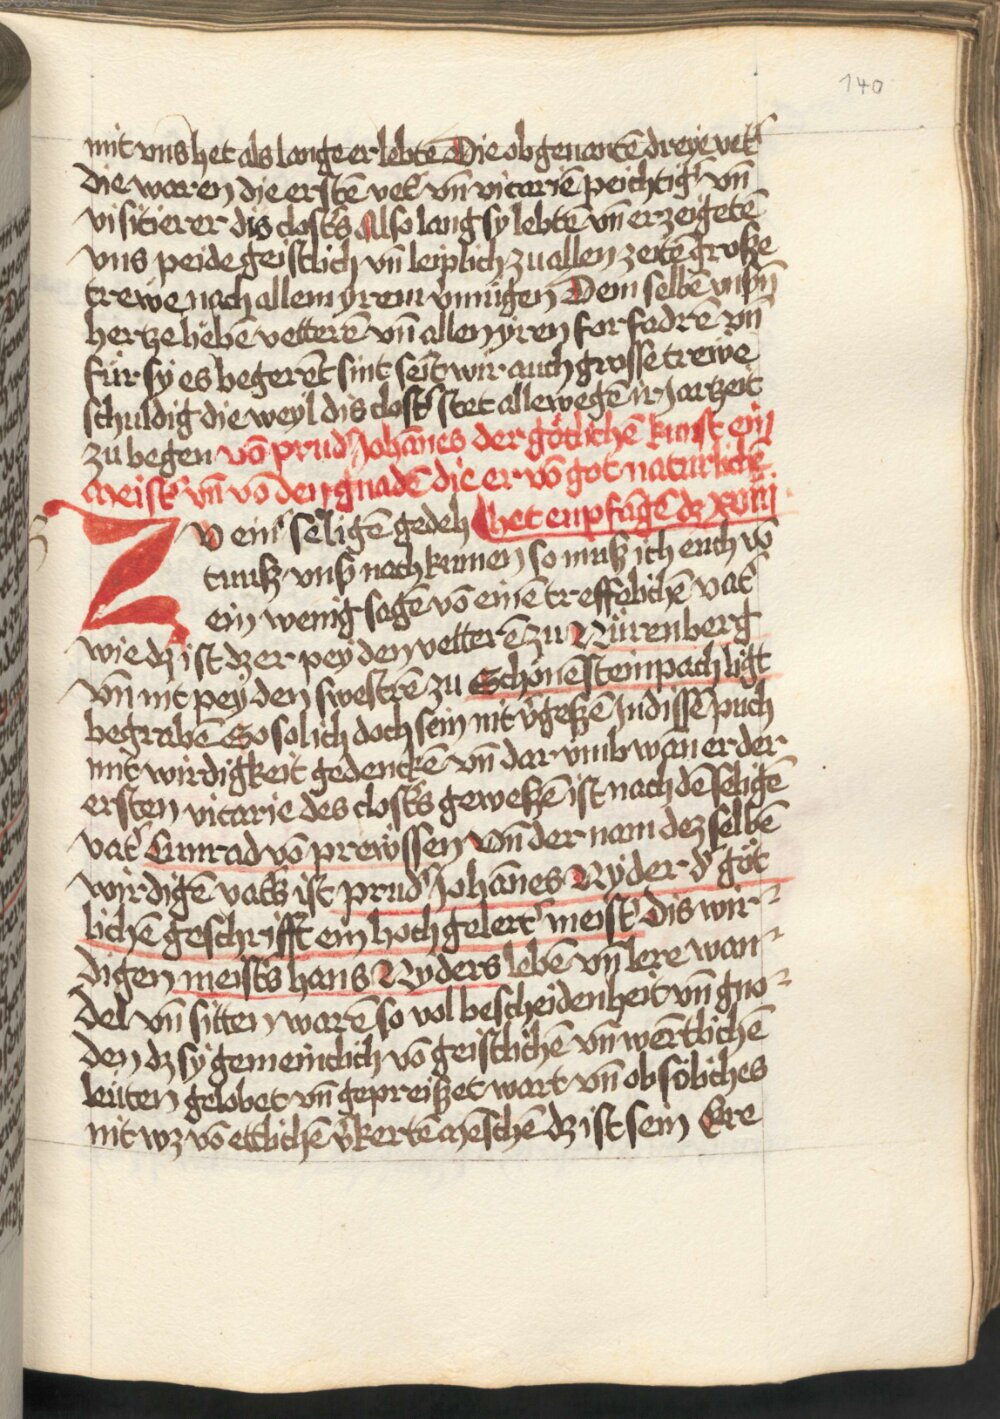 140
mit vns het als lange er lebte Die obgenantē dreye vet˜
die waren die erstē vet˜ vn̄ vicariē peichtig˜ vn̄
visitierer dis closters Also lang sy lebtē vn̄ erzeigetē
vns peide geistlich vn̄ leiplich zu allen zeitē große
trewe nach allem yrem vmügen Dem selbē vnßn̄
hertze liebē vetterē vn̄ allen yren forfadrē vn̄
für sy es begerēt sint seit wir auch grosse trewe
schuldig die weyl dis clost˜ stet allewegē ir jartzeit
zu begen vō prud˜ Johānes der götlichē kunst ein
meist˜ vn̄ vō den gnadē die er vō got naturlichē
het enpfāgē dz xviij
ZV ein˜ seligē gedeh
tnuß vnß nach kumen so muß ich euch vō
ein wenig sagē vō einē treffēlichē vat˜
wie dz ist dz er pey den vetterē zu Nürenberg
vn̄ nit pey den swestrē zu Schönēsteinpach ligt
begrabē So sol ich doch sein nit v˜geßē In dissē puch
mit wirdigkeit gedenckē vn̄ dar vmb wān er der
ersten vicarie des closters geweßē ist nach dē seligē
vat˜ Cunrad vō prewssen Vn̄ der nam dez selbē
wirdigē vatters ist prud˜ Johānes Nyder d˜ göt
lichē geschrifft ein hoch gelert˜ meist˜ Dis wir=
digen meisters hans Nyders lebē vn̄ lere wan=
del vn̄ sitten warē so vol bescheidenheit vn̄ gno=
den dz sy gemeinclich vō geistlichē vn̄ werētlichē
leüten gelobet vn̄ gepreißet wart vn̄ ob söliches
nit wz vō ettlichē v˜kertē mēschē dz ist sein Ere